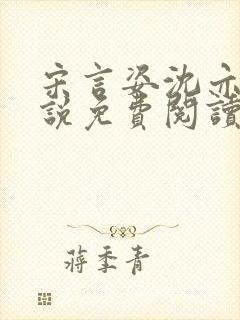 宋言姿沈亦
說免費閱讀
蔣季青